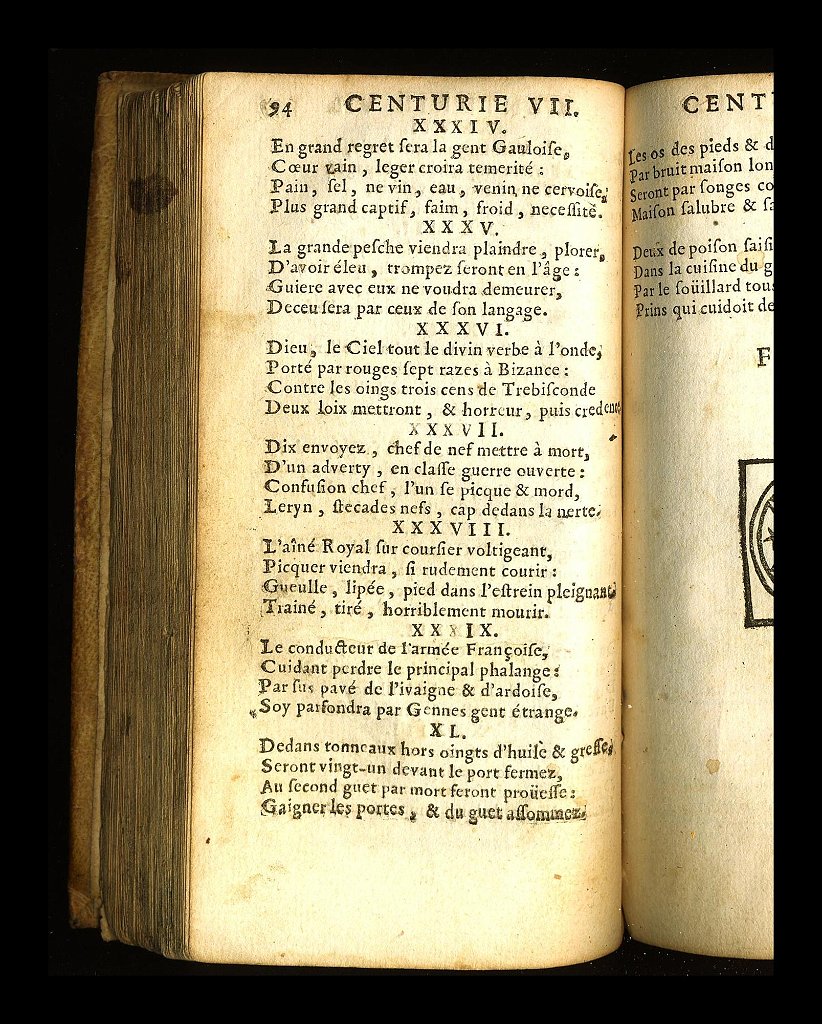 94 CENTURIE VII.
XXXIV.
En grand regret ſera la gent Gauloiſe,
Cœur vain, leger croira temerité :
Pain, ſel, ne vin, eau, venin ne cervoiſe,
Plus grand captif, faim, froid, neceſſité.
XXXV.
La grande peſche viendra plaindre, plorer,
D'avoir éleu, trompez ſeront en l'âge :
Guiere avec eux ne voudra demeurer,
Deceu ſera par ceux de ſon langage.
XXXVI.
Dieu, le Ciel tout le divin verbe à l'onde,
Porté par rouges ſept razes à Bizance :
Contre les oings trois cens de Trebiſconde
Deux loix mettront, & horreur, puis credence
XXXVII.
Dix envoyez, chef de nef mettre à mort,
D'un adverty, en claſſe guerre ouverte :
Confuſion chef, l'un ſe picque & mord,
Leryn, ſtecades nefs, cap dedans la nerte.
XXXVIII.
L'aîné Royal ſur courſier voltigeant,
Picquer viendra, ſi rudement courir :
Gueulle, lipée, pied dans l'eſtrein pleignant
Trainé, tiré, horriblement mourir.
XXXIX.
Le conducteur de l'armée Françoiſe,
Cuidant perdre le principal phalange :
Par ſus pavé de l'ivaigne & d'ardoiſe,
Soy parfondra par Gennes gent étrange.
XL.
Dedans tonneaux hors oingts d'huile & greſſe,
Seront vingt-un devant le port fermez,
Au ſecond guet par mort feront proüeſſe :
Gaigner les portes, & du guet aſſommez.
CENT
Les os des pieds & d
Par bruit maiſon lon
Seront par ſonges co
Maiſon ſalubre & ſa
Deux de poiſon ſaiſi
Dans la cuiſine du g
Par le ſoüillard tous
Prins qui cuidoit de
F